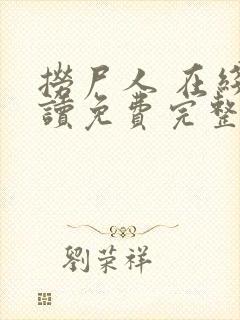 撈尸人 在線
讀免費完整
劉荣祥